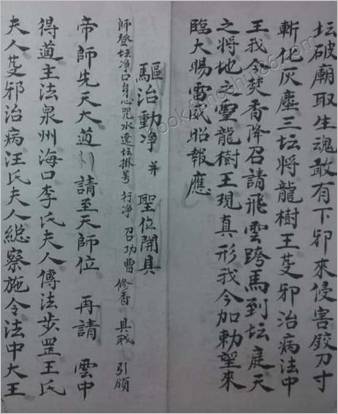 坛破廟取生魂敢有下邪來侵害鉸刀寸
斬化灰塵三坛將龍樹王茇邪治病法中
王我今焚香降召請飛雲跨馬到坛庭天
之將地之灵龍樹王現真形我今加勅望來
臨大賜雷威昭報應
驅治動净 并 聖位開具
師登坛净口身心咒水速位排蓦 行净 召功曹 修香 具职 引頒
帝師先天大道 請至天師位 再請 雲中
得道主法泉州海口李氏夫人傳法步罡王氏
夫人茇邪治病汪氏夫人総察施令法中大王